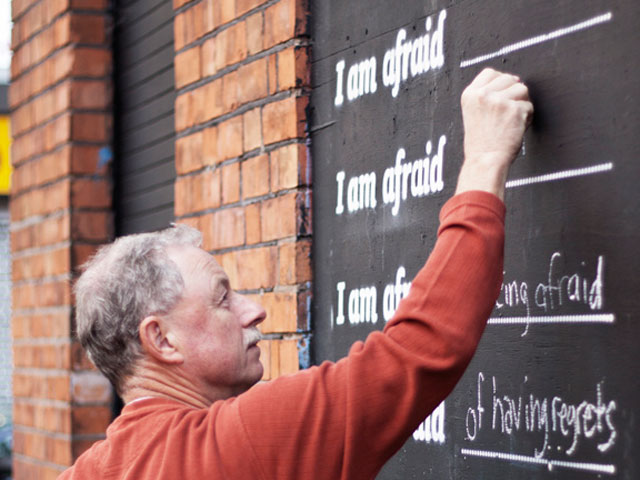 I am afraid
I am afraid
I am afraid ing afraid
aid of having regrets